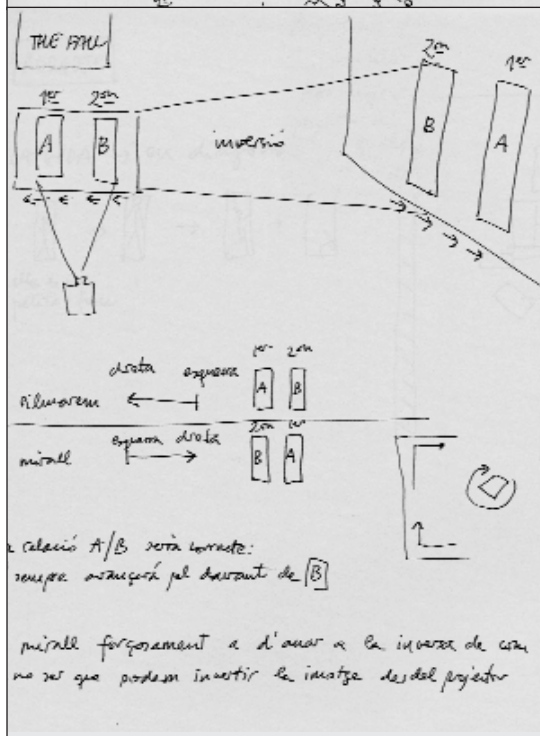 THE FALL
1er 2on
A B
inversió
2on 1er
B A
dreta esquerra
filmarem
1er 2on
A B
esquerra dreta
mirall
2on 1er
B A
relació A/B serà correcte:
sempre avançarà pel davant de B
mirall forçosament a d'anar a la inversa de com
no ser que podem invertir la imatge desdel projector